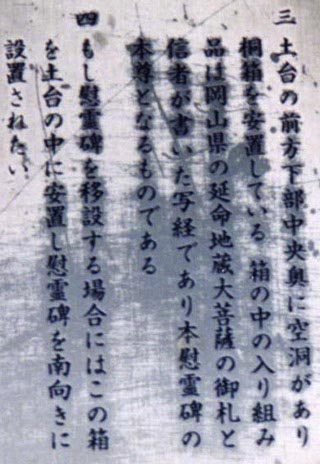 三 土台の前方下部中央奥に空洞があり
桐箱を安置している 箱の中の入り組み
品は岡山県の延命地蔵大菩薩の御札と
信者が書いた写経であり本慰霊碑の
本尊となるものである
四 もし慰霊碑を移設する場合にはこの箱
を土台の中に安置し慰霊碑を南向きに
設置されたい